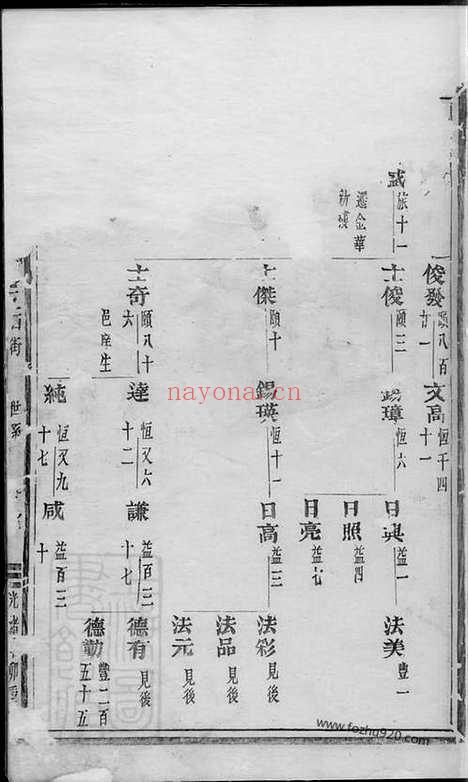 俊發 頤八百廿一
文高 恆千四十一
盛 旅十一
遷金華
士俊 頤三
錫璋 恆六
日典 益一
法美 豐一
日照 益四
日亮 益七
士傑 頤十
錫瑛 恆十一
日高 益二
法彩 見後
法品 見後
法元 見後
士奇 頤八十六
邑庠生
達 恆又六十二
謙 益百三十七
德有 見後
德勤 豐二百五十五
純 恆又九十七
咸 益百三十
世系
光緒
nayona.cn
www.fozhu920.com